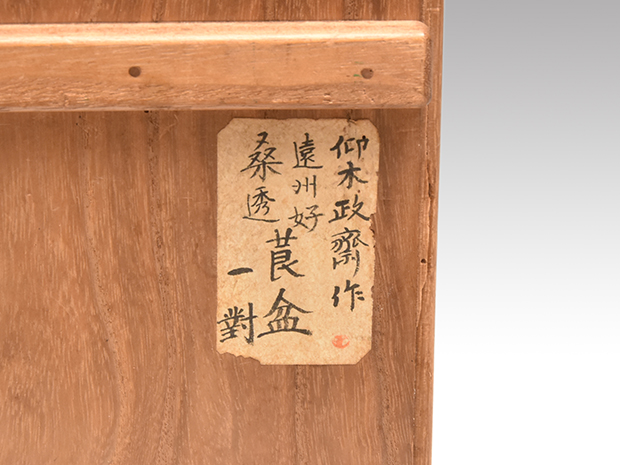 仰木政齋作
遠州好
桑透
莨盆
一對